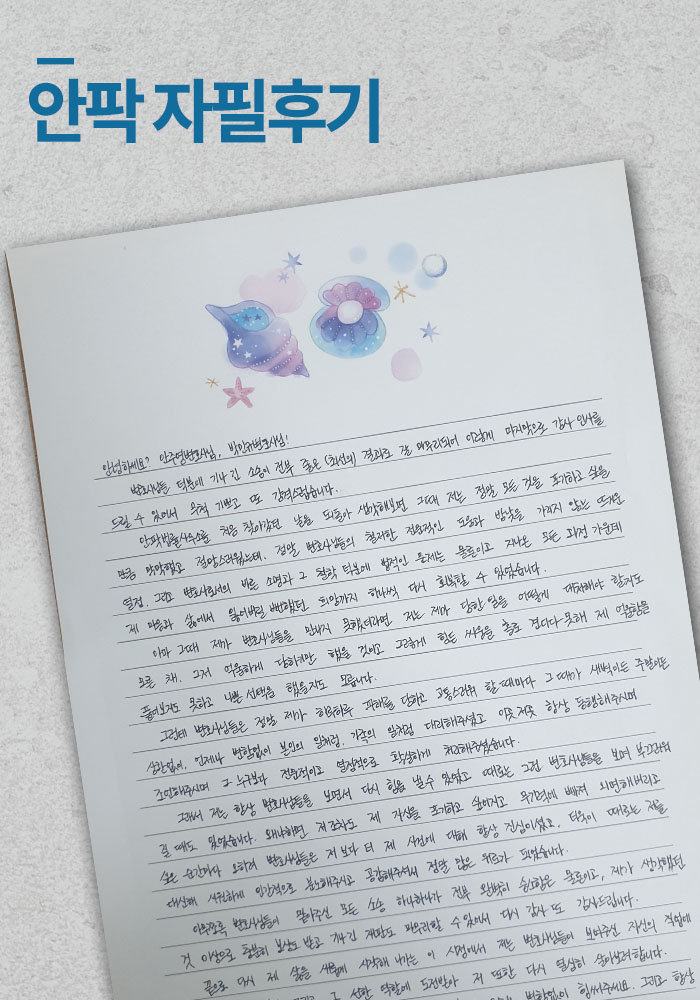 안팍 자필후기
안녕하세요? 안주영변호사님, 박민규변호사님!
변호사님들 덕분에 기나긴 소송이 전부 좋은 (최선의) 결과로 잘 마무리되어 이렇게 마지막으로 감사 인사를
드릴 수 있어서 무척 기쁘고 또 감격스럽습니다.
안팍법률사무소를 처음 찾아갔던 날을 되돌아 생각해보면 그때 저는 정말 모든 것을 포기하고 싶을
만큼 막막했고 절망스러웠는데, 정말 변호사님들의 철저한 전문적인 도움과 밤낮을 가리지 않는 뜨거운
열정, 그리고 변호사로서의 바른 소명과 그 철학 덕분에 법적인 문제는 물론이고 지나온 모든 과정 가운데
제 마음과 삶에서 잃어버릴 뻔했던 희망까지 하나씩 다시 회복할 수 있었습니다.
아마 그때 제가 변호사님들을 만나지 못했더라면 저는 제가 당한 일을 어떻게 대처해야 할지도
모른 채, 그저 억울하게 당하기만 했을 것이고 그렇게 힘든 싸움을 홀로 견디다 못해 제 억울함을
풀어보지도 못하고 나쁜 선택을 했을지도 모릅니다.
그런데 변호사님들은 정말 제가 하루하루 피해를 당하고 고통스러워 할 때마다 그 때가 새벽이든 주말이든
상관없이, 언제나 변함없이 본인의 일처럼, 가족의 일처럼 대리해주셨고 이모저모 항상 동행해주시며
조언해주시며 그 누구보다 전문적이고 열정적으로 확실하게 처리해주셨습니다.
그래서 저는 항상 변호사님들을 보면서 다시 힘을 낼 수 있었고 때로는 그런 변호사님들을 보며 부끄러워
질 때도 있었습니다. 왜냐하면 저조차도 제 자신을 포기하고 싶어지고 무기력에 빠져 외면해버리고
싶은 순간마다 오히려 변호사님들은 저보다 더 제 사건에 대해 항상 진심이셨고, 더욱이 때로는 저를
대신해 시원하게 인간적으로 분노해주시고 공감해주셔서 정말 많은 위로가 되었습니다.
아무쪼록 변호사님들이 맡아주신 모든 소송 하나하나가 전부 완벽히 승소함은 물론이고, 제가 생각했던
것 이상으로 충분히 보상도 받고 기나긴 재판도 마무리할 수 있어서 다시 감사 또 감사드립니다.
끝으로 다시 제 삶을 새롭게 시작해 나가는 이 시점에서 저는 변호사님들이 보여주신 자신의 직업에
선한 역할에 도전받아 저 또한 다시 열심히 살아보려합니다.
변함없이 힘써주세요. 그리고 항상